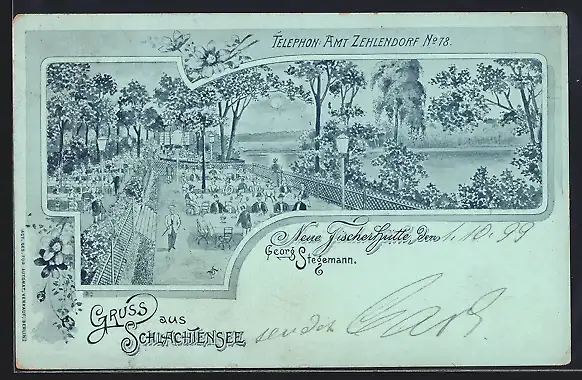 TELEPHON: AMT ZEHLENDORF No 78.
Neue Fischerhütte, den 1.10.99
Georg Stegemann.
GRUSS aus
SCHLACHTENSEE
sendet